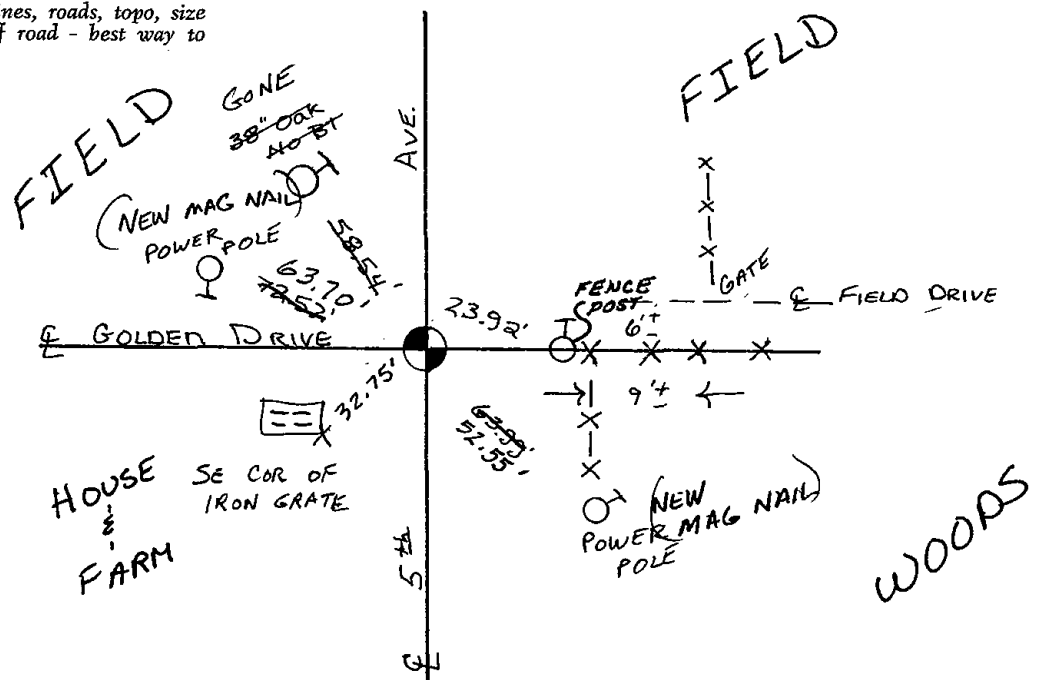 nes, roads, topo, size
f road - best way to
FIELD
GONE
38" Oak
No BT
AVE.
FIELD
(NEW MAG NAIL)
POWER POLE
58.54'
63.70'
72.52'
GATE
FENCE
POST
6'±
℄ FIELD DRIVE
23.92'
℄ GOLDEN DRIVE
32.75'
9'±
52.55'
HOUSE
&
FARM
SE COR OF
IRON GRATE
(NEW
MAG NAIL)
POWER
POLE
WOODS
5th
℄